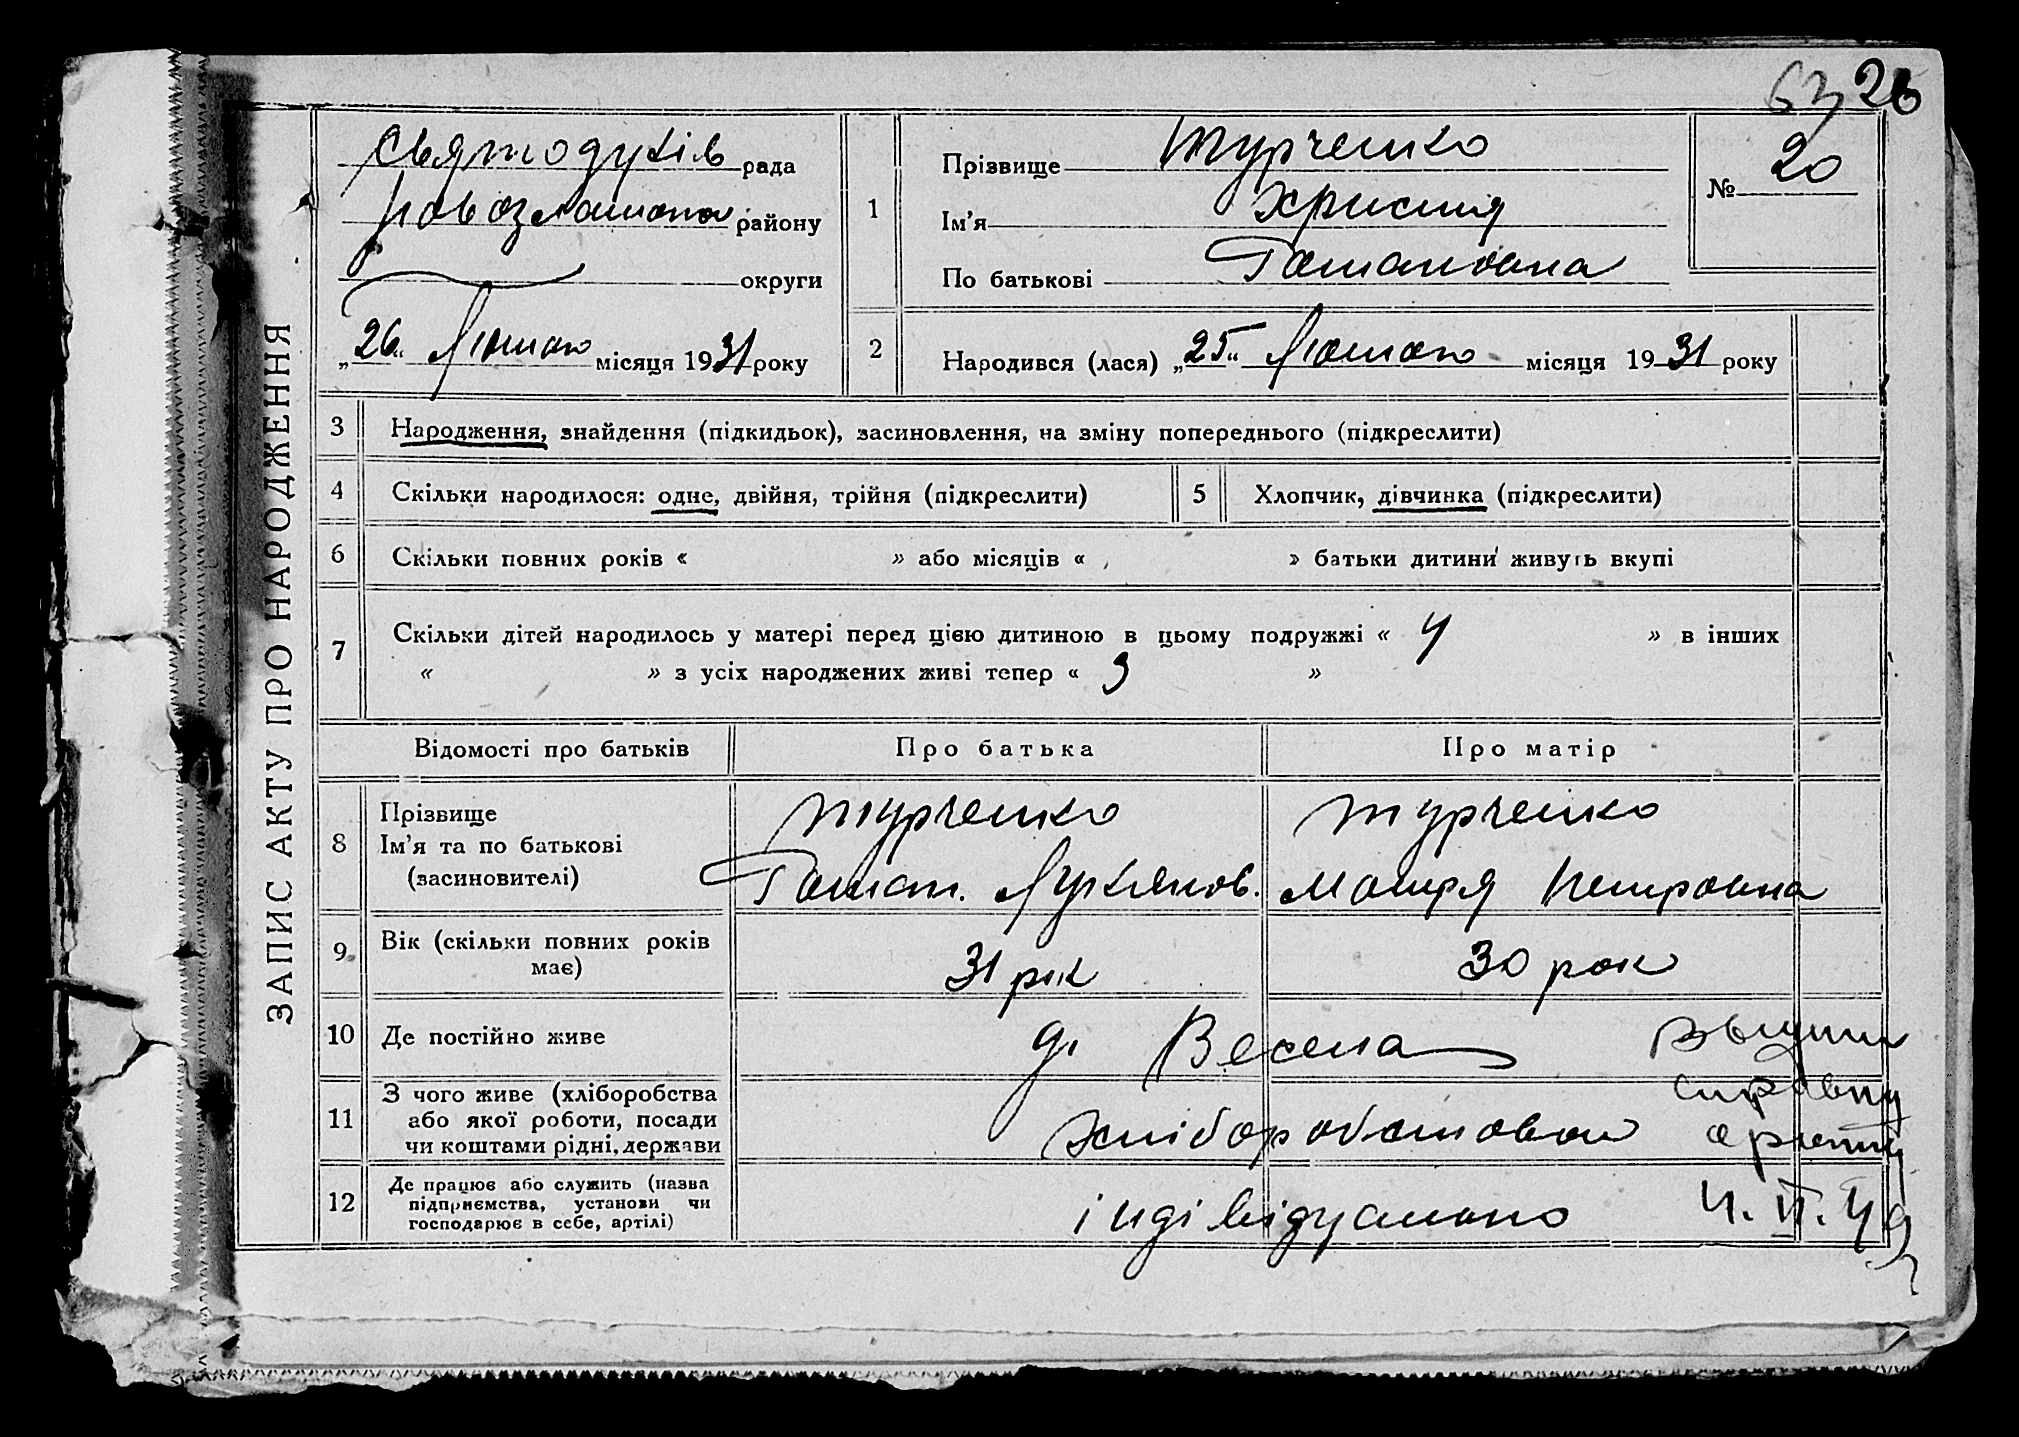 63 26
ЗАПИС АКТУ ПРО НАРОДЖЕННЯ
Святодухів рада
Новозлатопол району
округи
„26“ Лютого місяця 1931 року
1
Прізвище Турченко
Ім’я Христя
По батькові Гатановна
№ 20
2
Народився (лася) „25“ Лютого місяця 1931 року
3 Народження, знайдення (підкидьок), засиновлення, на зміну попереднього (підкреслити)
4 Скільки народилося: одне, двійня, трійня (підкреслити) 5 Хлопчик, дівчинка (підкреслити)
6 Скільки повних років « » або місяців « » батьки дитини живуть вкупі
7 Скільки дітей народилось у матері перед цією дитиною в цьому подружжі « 4 » в інших
« » з усіх народжених живі тепер « 3 »
Відомості про батьків Про батька Про матір
8 Прізвище
Ім’я та по батькові
(засиновителі)
Турченко
Гатан. Лукянов.
Турченко
Мотря Петровна
9 Вік (скільки повних років
має)
31 рік 30 рок
10 Де постійно живе д. Весела
11 З чого живе (хліборобства
або якої роботи, посади
чи коштами рідні, держави
хліборобством
12 Де працює або служить (назва
підприємства, установи чи
господарює в себе, артілі)
індівідуально
справку